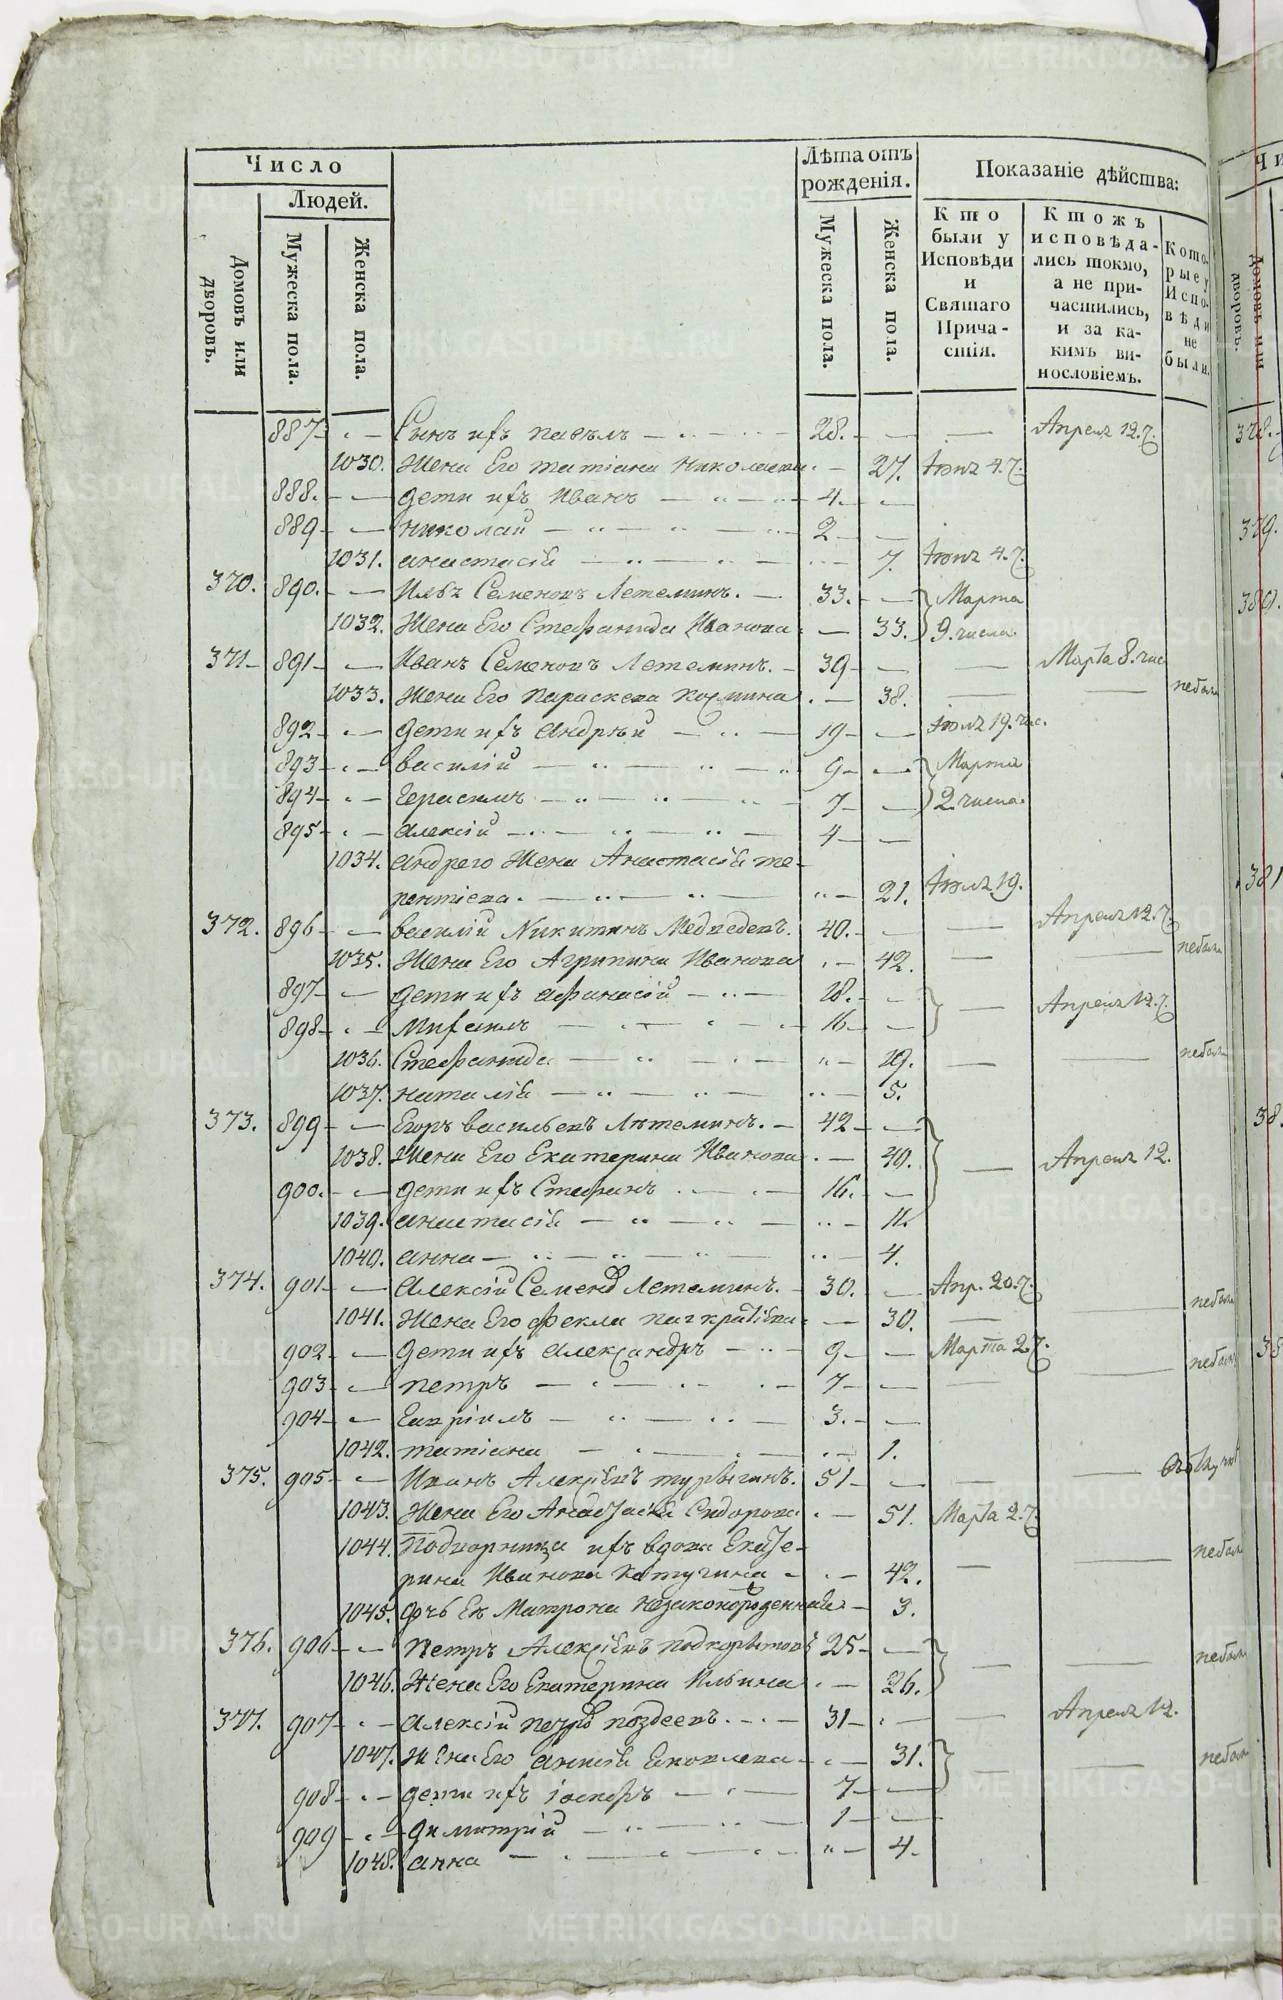 Число
Людей.
Домовъ или дворовъ.
Мужеска пола.
Женска пола.
Лѣта отъ рожденія.
Мужеска пола.
Женска пола.
Показаніе дѣйства:
Кто были у Исповѣди и Святаго Причастія.
Ктожъ исповѣдались токмо, а не причастились, и за какимъ винословіемъ.
Которые у Исповѣди не были.
887 Сынъ ихъ павелъ 28. Апреля 12.
1030. Жена Его татіана Николаева 27. Іюня 4.
888. дети ихъ Иванъ 4
889 николай 2
1031. анастасія 7. Іюня 4.
370. 890. Илья Семеновъ Летеминъ. 33. Марта
1032. Жена Его Стефанида Иванова 33. 9. числа
371 891 Иванъ Семеновъ Летеминъ. 39 Марта 8. чис
1033. Жена Его параскева козмина 38. небыла
892 дети ихъ андрей 19 Іюля 19. чис.
893 василій 9 Марта
894 Герасимъ 7 2 числа.
895 алексій 4
1034. андрего Жена Анастасія те-
рентіева. 21. Іюля 19.
372. 896 василій Никитинъ Медведевъ. 40. Апреля 12.
1035. Жена Его Агрипина Иванова 42. небыла
897 дети ихъ афанасій 18. Апреля 12.
898 михаилъ 16
1036. Стефанида 19. небыла
1037. наталія 5.
373. 899 Егоръ васильевъ Летеминъ. 42
1038. Жена Его Екатерина Иванова 40. Апреля 12.
900. дети ихъ Стефанъ 16.
1039. анастасія 11.
1040. анна 4.
374. 901 алексій Семенов Летеминъ. 30. Апр. 20.
1041. Жена Его фекла панкратіева 30. небыла
902 дети ихъ александръ 9 Марта 2
903 петръ 7 небылъ
904 Гавріилъ 3.
1042. татіана 1.
375. 905 Иванъ Алексіевъ турыгинъ. 51
1043. Жена Его Анастасія Сидорова 51. Марта 2.
1044. Подворница ихъ вдова Екате-
рина Иванова 42. небыла
1045. дчь Ея Матрона незаконорожденная 3.
376. 906 петръ Алексіевъ подкорытовъ 25 небыли
1046. Жена Его Екатерина Ильина 26.
377. 907 алексій петров поздеевъ. 31 Апреля 12.
1047. Жена Его анисія Яковлева 31. небыла
908 дети ихъ іосифъ 7
909 димитрій 1
1048. анна 4.
378.
379.
380.
381
METRIKI.GASO-URAL.RU